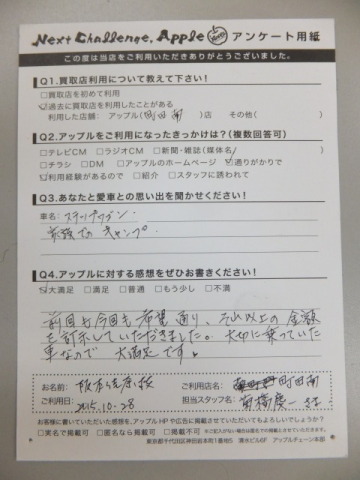 Next Challenge, Apple アンケート用紙
この度は当店をご利用いただきありがとうございました。
Q1.買取店利用について教えて下さい!
□買取店を初めて利用
☑過去に買取店を利用したことがある
利用した店舗: アップル(町田南)店 その他( )
Q2.アップルをご利用になったきっかけは?(複数回答可)
□テレビCM □ラジオCM □新聞・雑誌(媒体名 ) ☑通りがかりで
□チラシ □DM □アップルのホームページ
☑利用経験があるので □紹介 □スタッフに誘われて
Q3.あなたと愛車との思い出を聞かせください!
車名: ステップワゴン
家族でのキャンプ
Q4.アップルに対する感想をぜひお書きください!
☑大満足 □満足 □普通 □もう少し □不満
前回も今回も希望通り、それ以上の金額
を計示していただきました。大切に乗っていた
車なので 大満足です。
お名前: ご利用店名: 町田南
ご利用日: 2015.10.28 担当スタッフ名: さま
お客様に書いていただいた感想を、アップルHPや広告に掲載させていただいてもよろしいでしょうか?
□実名で掲載可 □匿名なら掲載可 □掲載不可
東京都千代田区神田岩本町1番地5 清水ビル6F アップルチェーン本部